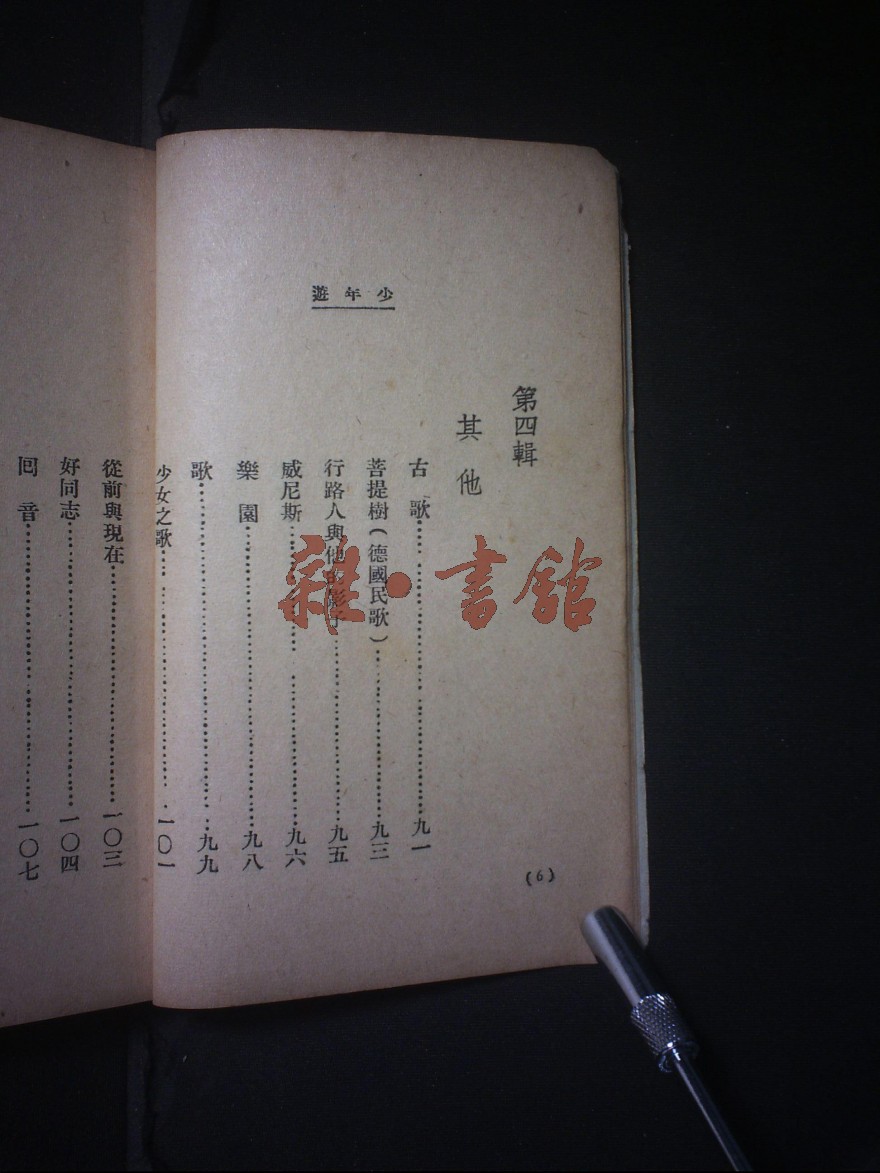 少年遊
第四輯
其他
古歌……………………九一
菩提樹（德國民歌）……………………九三
行路人與他的影子……………………九五
威尼斯……………………九六
樂園……………………九八
歌……………………九九
少女之歌……………………一〇一
從前與現在……………………一〇三
好同志……………………一〇四
回音……………………一〇七
(6)
雜·書館